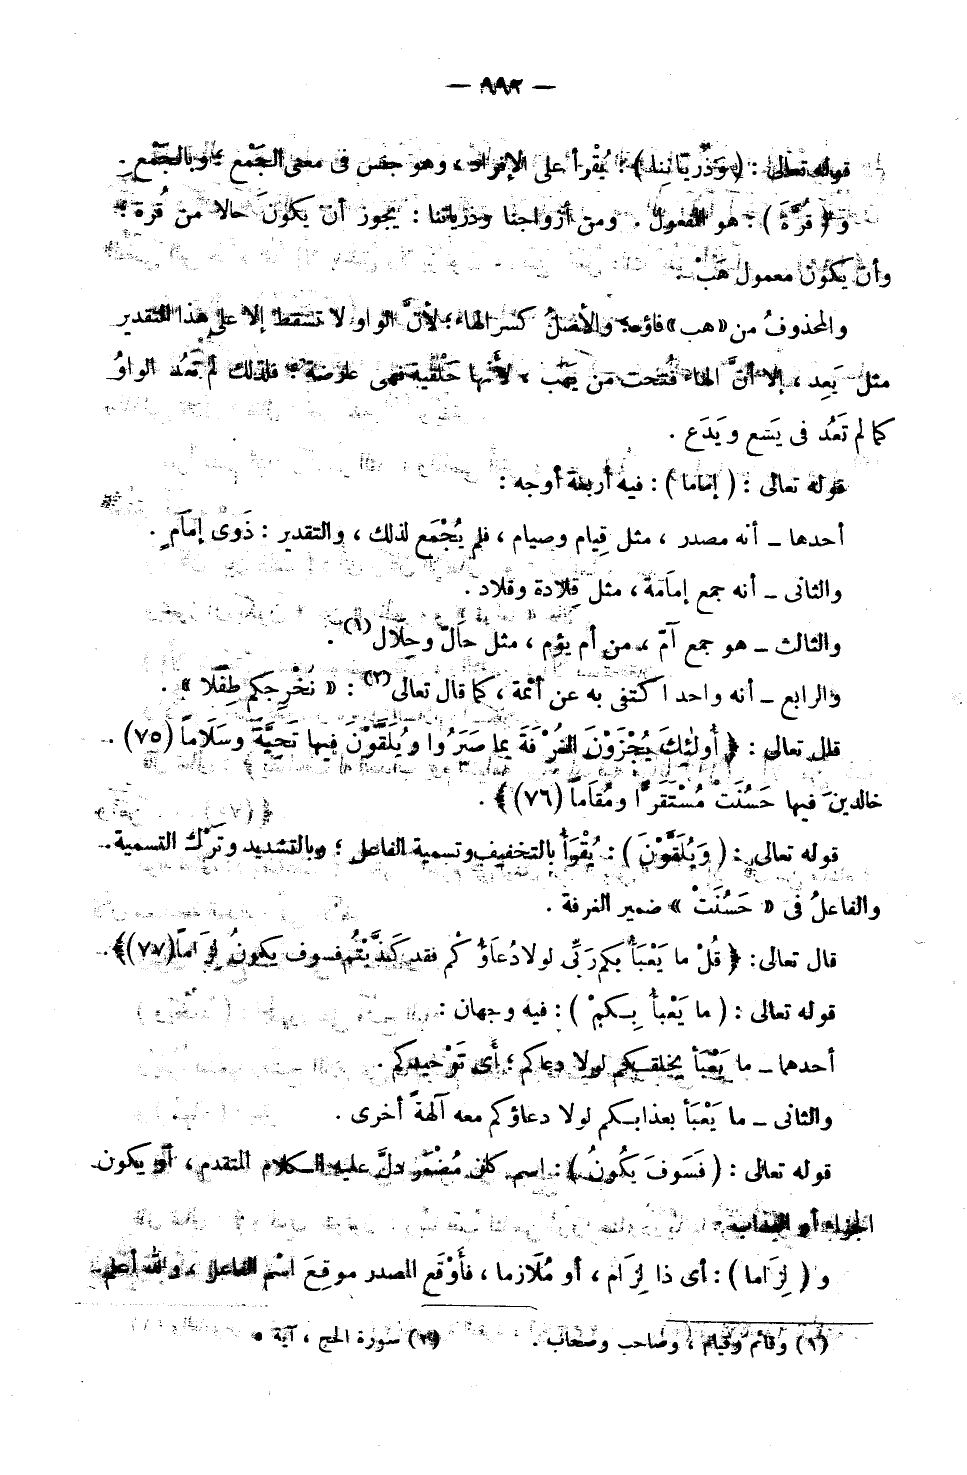 — ٩٩٢ —
قوله تعالى : ( وَذُرِّيَّاتِنا ) : يُقْرأ على الإفراد ، وهو جنس فى معنى الجَمْع ؛ وبالجَمْع .
و ( قُرَّةَ ) : هو المفعول . ومن أزواجنا وذرياتنا : يجوز أن يكونَ حالا من قُرة ؛
وأن يكون معمول هَبْ .
والمحذوفُ من « هب » فاؤه ؛ والأصلُ كسر الهاء ؛ لأنَّ الواو لا تسقط إلا على هذا التقدير
مثل يَعِد ، إلا أنَّ الهاء فُتحت من يَهَب ، لأنها حَلْقية فهى عارضة ؛ فلذلك لم تَعُد الواوُ
كما لم تَعُد فى يَسَع ويَدَع .
قوله تعالى : ( إماما ) : فيه أربعة أوجه :
أحدها – أنه مصدر ، مثل قيام وصيام ، فلم يُجْمَع لذلك ، والتقدير : ذَوى إمامٍ .
والثانى – أنه جمع إمامَة ، مثل قِلادة وقلاد .
والثالث – هو جمع آمّ ، من أم يؤم ، مثل حَالّ وحِلال (١) .
والرابع – أنه واحد اكتفى به عن أئمة ، كما قال تعالى (٢) : « نُخْرِجكم طِفْلا » .
قال تعالى : ﴿ أُولَئِكَ يُجْزَوْنَ الغُرْفَةَ بِما صَبَرُوا ويُلَقَّوْنَ فيها تَحِيَّةً وسَلَاماً (٧٥) .
خالدينَ فيها حَسُنَتْ مُسْتَقَرًّا ومُقَاماً (٧٦)﴾ .
قوله تعالى : ( وَيُلَقَّوْنَ ) : يُقْرَأُ بالتخفيف وتسمية الفاعل ؛ وبالتشديد وتَرْك التسمية .
والفاعلُ فى « حَسُنَتْ » ضمير الغرفة .
قال تعالى : ﴿ قُلْ ما يَعْبَأُ بكم رَبِّى لولا دُعَاؤُكُمْ فقد كَذَّبْتُمْ فسوف يكونُ لِزَاماً (٧٧)﴾ .
قوله تعالى : ( ما يَعْبأُ بِكمْ ) : فيه وجهان :
أحدهما – ما يَعْبَأ بخلقكم لولا دعاكم ؛ أى تَوْحيدكم .
والثانى – ما يَعْبَأ بعذابكم لولا دعاؤكم معه آلهةً أخرى .
قوله تعالى : ( فَسَوفَ يَكُونُ ) : اسم كان مُضْمَر دلَّ عليه الكلام المتقدم ، أى يكون
الجزاء أو العذاب
و ( لِزَاما ) : أى ذا لِزَام ، أو مُلَازما ، فأَوْقَع المصدر موقعَ اسْم الفاعل ، والله أعلم .
(١) وقائم وقيام ، وصاحب وصحاب .
(٢) سورة الحج ، آية ٥